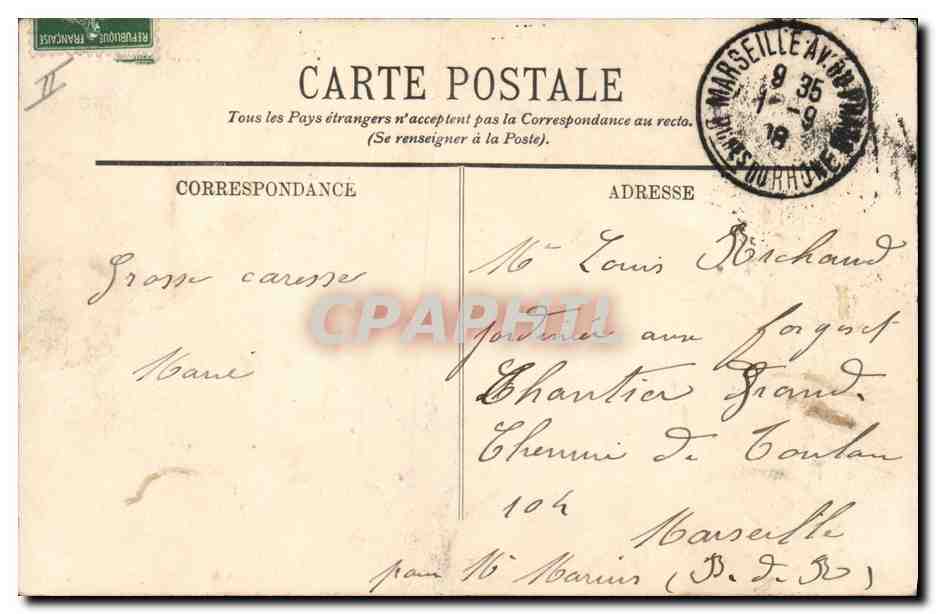 REPUBLIQUE FRANÇAISE
II
CARTE POSTALE
Tous les Pays étrangers n'acceptent pas la Correspondance au recto.
(Se renseigner à la Poste).
MARSEILLE AV. DU
9 35
1 - 9
BCHES DU RHONE
CORRESPONDANCE
ADRESSE
Mr Louis Richaud
Grosse caresse
CPAPHIL
aux forges et
Marie
Chantier Grand
Chemin de Toulon
104
Marseille
pour Mr Marius (B. d. R)